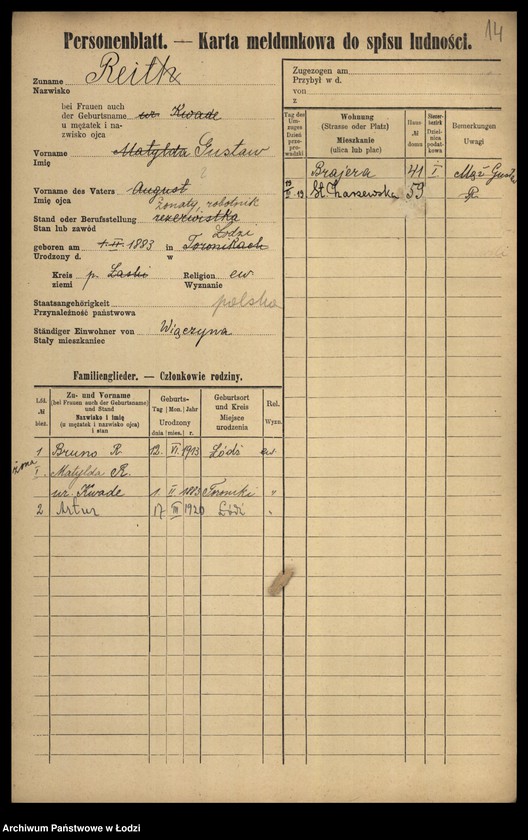 14
Personenblatt. — Karta meldunkowa do spisu ludności.
Zuname
Nazwisko
Reith
bei Frauen auch
der Geburtsname
u mężatek i na-
zwisko ojca
ur. Kwade
Vorname
Imię
Matylda Gustaw
Vorname des Vaters
Imię ojca
August
żonaty, robotnik
Stand oder Berufsstellung
Stan lub zawód
rezerwistka
Łodzi
geboren am 1. II. 1883 in Toronikach
Urodzony d. w
Kreis
ziemi
p. Laski
Religion
Wyznanie
ew
Staatsangehörigkeit
Przynależność państwowa
polska
Ständiger Einwohner von
Stały mieszkaniec
Wiączyna
Familienglieder. — Członkowie rodziny.
Lfd.
№
bież.
Zu- und Vorname
(bei Frauen auch der Geburtsname)
und Stand
Nazwisko i imię
(u mężatek i nazwisko ojca)
i stan
Geburts-
Tag | Mon. | Jahr
Urodzony
dnia | mies. | r.
Geburtsort
und Kreis
Miejsce
urodzenia
Rel.
Wyzn.
1 Bruno R 12. VI. 1913 Łódź ew
żona
1. Matylda R.
ur. Kwade 1. II 1883 Toroniki "
2 Artur 17 III 1920 Łódź "
Zugezogen am
Przybył w d.
von
z
Tag des
Um-
zuges
Dzień
prze-
prowadzki
Wohnung
(Strasse oder Platz)
Mieszkanie
(ulica lub plac)
Haus
№
domu
Steuer-
bezirk
Dziel-
nica
podat-
kowa
Bemerkungen
Uwagi
Brajera 41 I Mąż Gustaw
R
St. Karszewska 59
Archiwum Państwowe w Łodzi